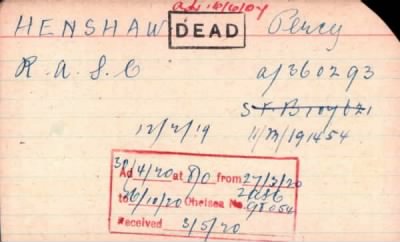 HENSHAW DEAD Percy
R.A.S.C a/360293
12/2/19 11/M/191454
30/4/20 at 8/0 from 27/3/20
to 6/10/20 Chelsea No.
Received 3/5/20